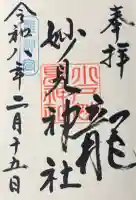 奉拝
龍
妙見神社
令和八年二月十五日